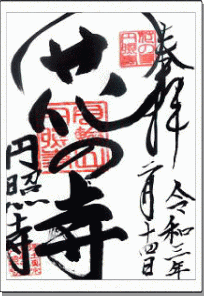 奉拝
令和二年
二月十四日
花の寺
円照寺